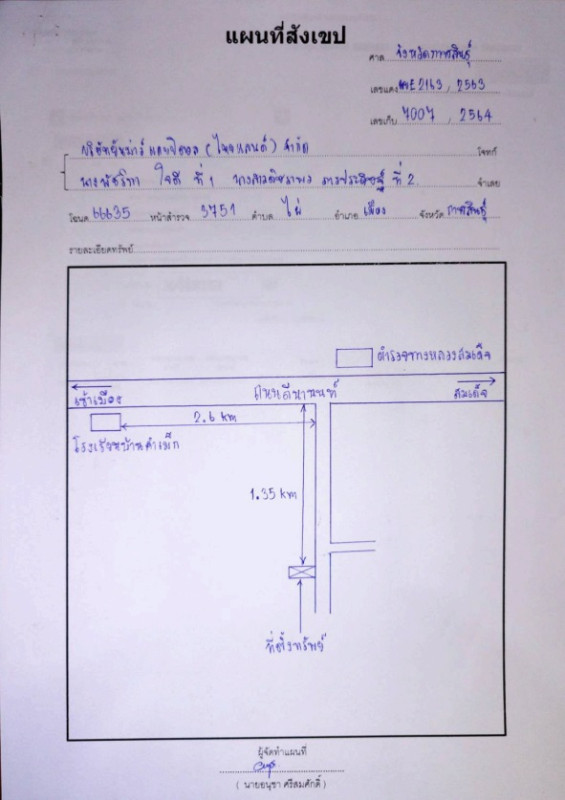 แผนที่สังเขป
ศาล จังหวัดกาฬสินธุ์
เลขแดง ผบE2163, 2563
เลขเก็บ 7007, 2564
บริษัทอินทาร์ แคปปิตอล (ไทยแลนด์) จำกัด โจทก์
ใจดี ที่ 1 ที่ 2 จำเลย
โฉนด 66635 หน้าสำรวจ 3751 ตำบล ไผ่ อำเภอ เมือง จังหวัด กาฬสินธุ์
รายละเอียดทรัพย์
ตำรวจทางหลวงสมเด็จ
เข้าเมือง ถนนถีนานนท์ สมเด็จ
2.6 km
โรงเรียนบ้านคำเม็ก
1.35 km
ที่ตั้งทรัพย์
ผู้จัดทำแผนที่
( นายอนุชา ศรีสมศักดิ์ )